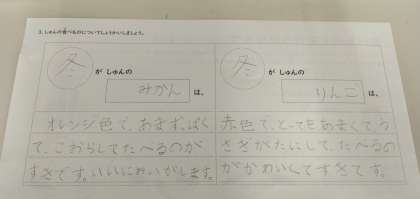 3. しゅんの食べものについてしょうかいしましょう。
冬 が しゅんの
みかん は、
オレンジ色で、あまずっぱく
て、こおらしてたべるのが
すきです。いいにおいがします。
冬 が しゅんの
りんご は、
赤色で、とってもあまくて、う
さぎがたにして、たべるの
がかわいくてすきです。